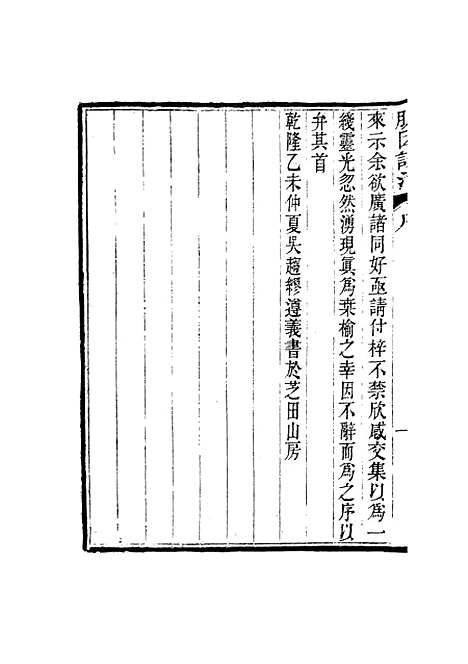 脈因證治 序 一
來示余欲廣諸同好亟請付梓不禁欣感交集以為一
綫靈光忽然湧現眞為桑榆之幸因不辭而為之序以
弁其首
乾隆乙未仲夏吳趨繆遵義書於芝田山房